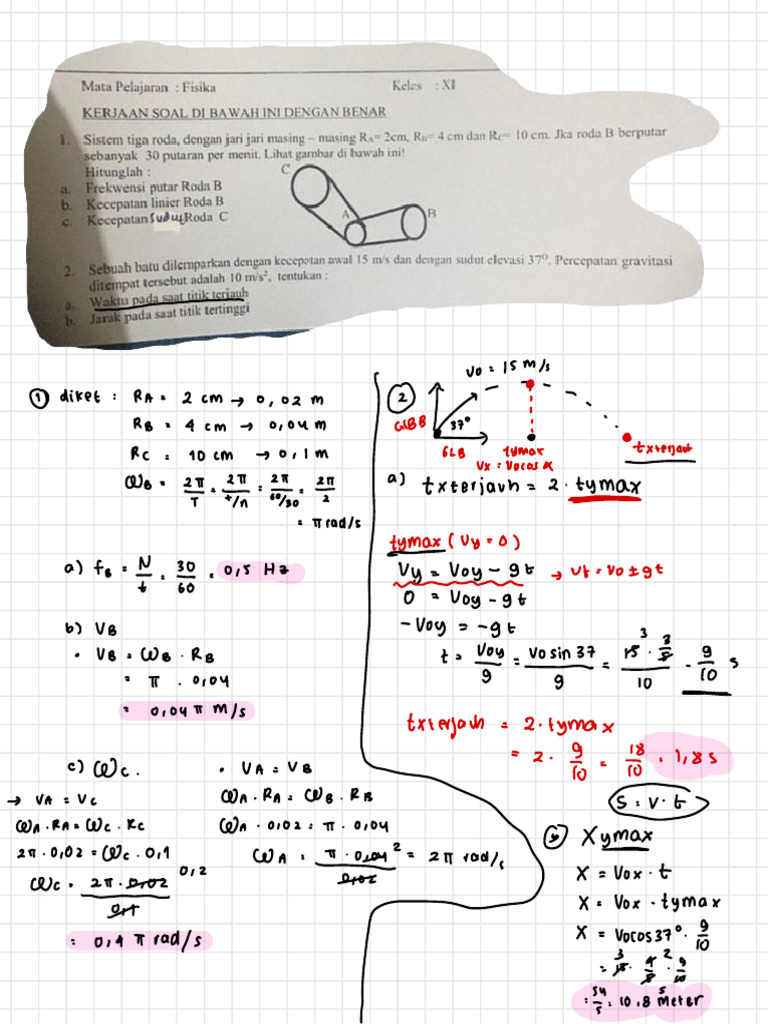 Mata Pelajaran : Fisika Kelas : XI
KERJAAN SOAL DI BAWAH INI DENGAN BENAR
1. Sistem tiga roda, dengan jari jari masing – masing RA= 2cm, RB= 4 cm dan RC= 10 cm. Jka roda B berputar
sebanyak 30 putaran per menit. Lihat gambar di bawah ini!
Hitunglah :
a. Frekwensi putar Roda B
b. Kecepatan linier Roda B
c. Kecepatan sudut Roda C
C
A
B
2. Sebuah batu dilemparkan dengan kecepatan awal 15 m/s dan dengan sudut elevasi 37⁰. Percepatan gravitasi
ditempat tersebut adalah 10 m/s², tentukan :
a. Waktu pada saat titik terjauh
b. Jarak pada saat titik tertinggi
① diket : RA = 2 cm → 0,02 m
RB = 4 cm → 0,04 m
RC = 10 cm → 0,1 m
ωB = 2π/T = 2π/t/n = 2π/60/30 = 2π/2
= π rad/s
a) fB = N/t = 30/60 = 0,5 Hz
b) VB
• VB = ωB . RB
= π . 0,04
= 0,04 π m/s
c) ωC.
→ VA = VC
ωA . RA = ωC . RC
2π . 0,02 = ωC . 0,1
ωC = 2π . 0,02/0,1 0,2
= 0,4 π rad/s
• VA = VB
ωA . RA = ωB . RB
ωA . 0,02 = π . 0,04
ωA = π . 0,04/0,02 2 = 2π rad/s
②
Vo = 15 m/s
GLBB
37°
GLB
tymax
Vx = Vo cos α
txterjauh
a) txterjauh = 2 . tymax
tymax ( Vy = 0 )
Vy = Voy - gt → Vt = Vo ± gt
0 = Voy - gt
- Voy = - gt
t = Voy/g = Vo sin 37/g = 15 . 3/5/10 3 = 9/10 s
txterjauh = 2 . tymax
= 2 . 9/10 = 18/10 = 1,8 s
S = V . t
b) Xymax
X = Vox . t
X = Vox . tymax
X = Vo cos 37° . 9/10
= 15 . 4/5 . 9/10 3 2 5
= 54/5 = 10,8 Meter